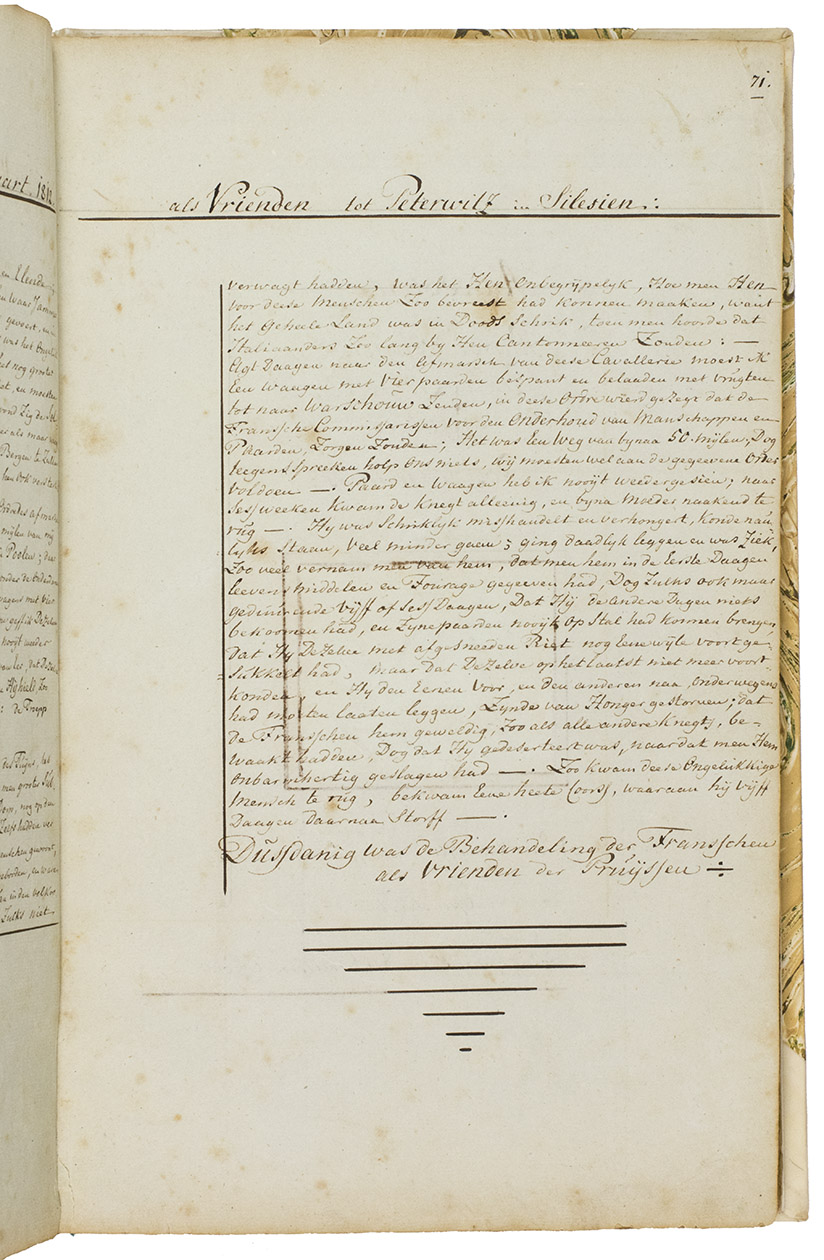 71.
art. 1812.
als Vrienden tot Peterwitz in Silesien .:
verwagt hadden, was het Hen Onbegrypelyk, Hoe men Hen
voor deese Menschen Zoo bevreest had konnen maaken, want
het Geheele Land was in Doods Schrik, toen men hoorde dat
Italiaanders Zoo lang by Hen Cantonneeren Zouden : —
Agt Daagen naar den Afmarsch van deese Cavallerie moest ik
Een Waagen met Vier paarden bespant en belaaden met vrugten
tot naar Warschouw Zenden, in deese Ofre wierd gezegt dat de
Fransche Commissarissen voor den Onderhoud van Manschappen en
Paarden, Zorgen Zouden; Het was Een Weg van byna 50 mylen, Dog
teegenspreeken holp Ons niets, Wij moesten wel aan de gegeevene Ofre
voldoen —. Paard en Waagen heb ik nooijt weedergesien; naar
Sess weeken kwam de Knegt alleenig, en byna Moeder naakend te
rüg —. Hy was Schriklyk misshandelt en verhongert, konde naü
lyks Staan, veel minder gaen; ging daadlyk leggen en was Ziek,
Zoo veel vernam men van hem, dat men hem in de Eerste Daagen
leevensmiddelen en Fourage gegeeven had, Dog Zulks ook maar
gedüürende Vijff of Sess Daagen, Dat Hij de Andere Dagen niets
bekoomen had, en Zyne paarden nooijt Op Stal had konnen brengen
Dat Hy De Zelve met afgesneeden Riet nog Eene wyle voort ge-
Sukkelt had, maar dat De Zelve op het laatst niet meer voort
konden, en Hy den Eenen voor, en den anderen naa, Onderwegens
had moeten laaten leggen, Zynde van Honger gestorven; dat
De Franschen hem geweldig, Zoo als alle andere Knegts, be-
waakt hadden, Dog dat Hy gedeserteert was, naar dat men Hem
Onbarmhertig geslagen had —. Zoo kwam deese Ongelukkige
Mensch te rüg, bekwam Eene heete Coors, waaraan hij vijff
Daagen daarnaa Storff —.
Düssdanig was de Behandeling der Franschen
als Vrienden der Pruÿssen ÷